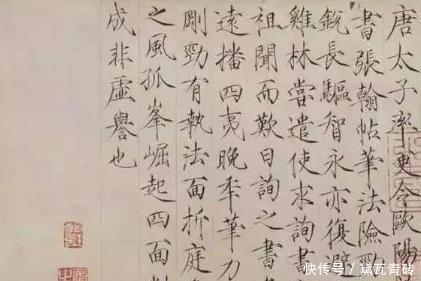 唐太子率更令歐陽
書張翰帖筆法險
銳長驅智永亦復避
雞林嘗遣使求詢書
祖聞而歎曰詢之書
遠播四夷晚秊筆力
剛勁有執法面折庭
之風孤峯崛起四面
成非虛譽也
快传号 / 黛瓦青砖